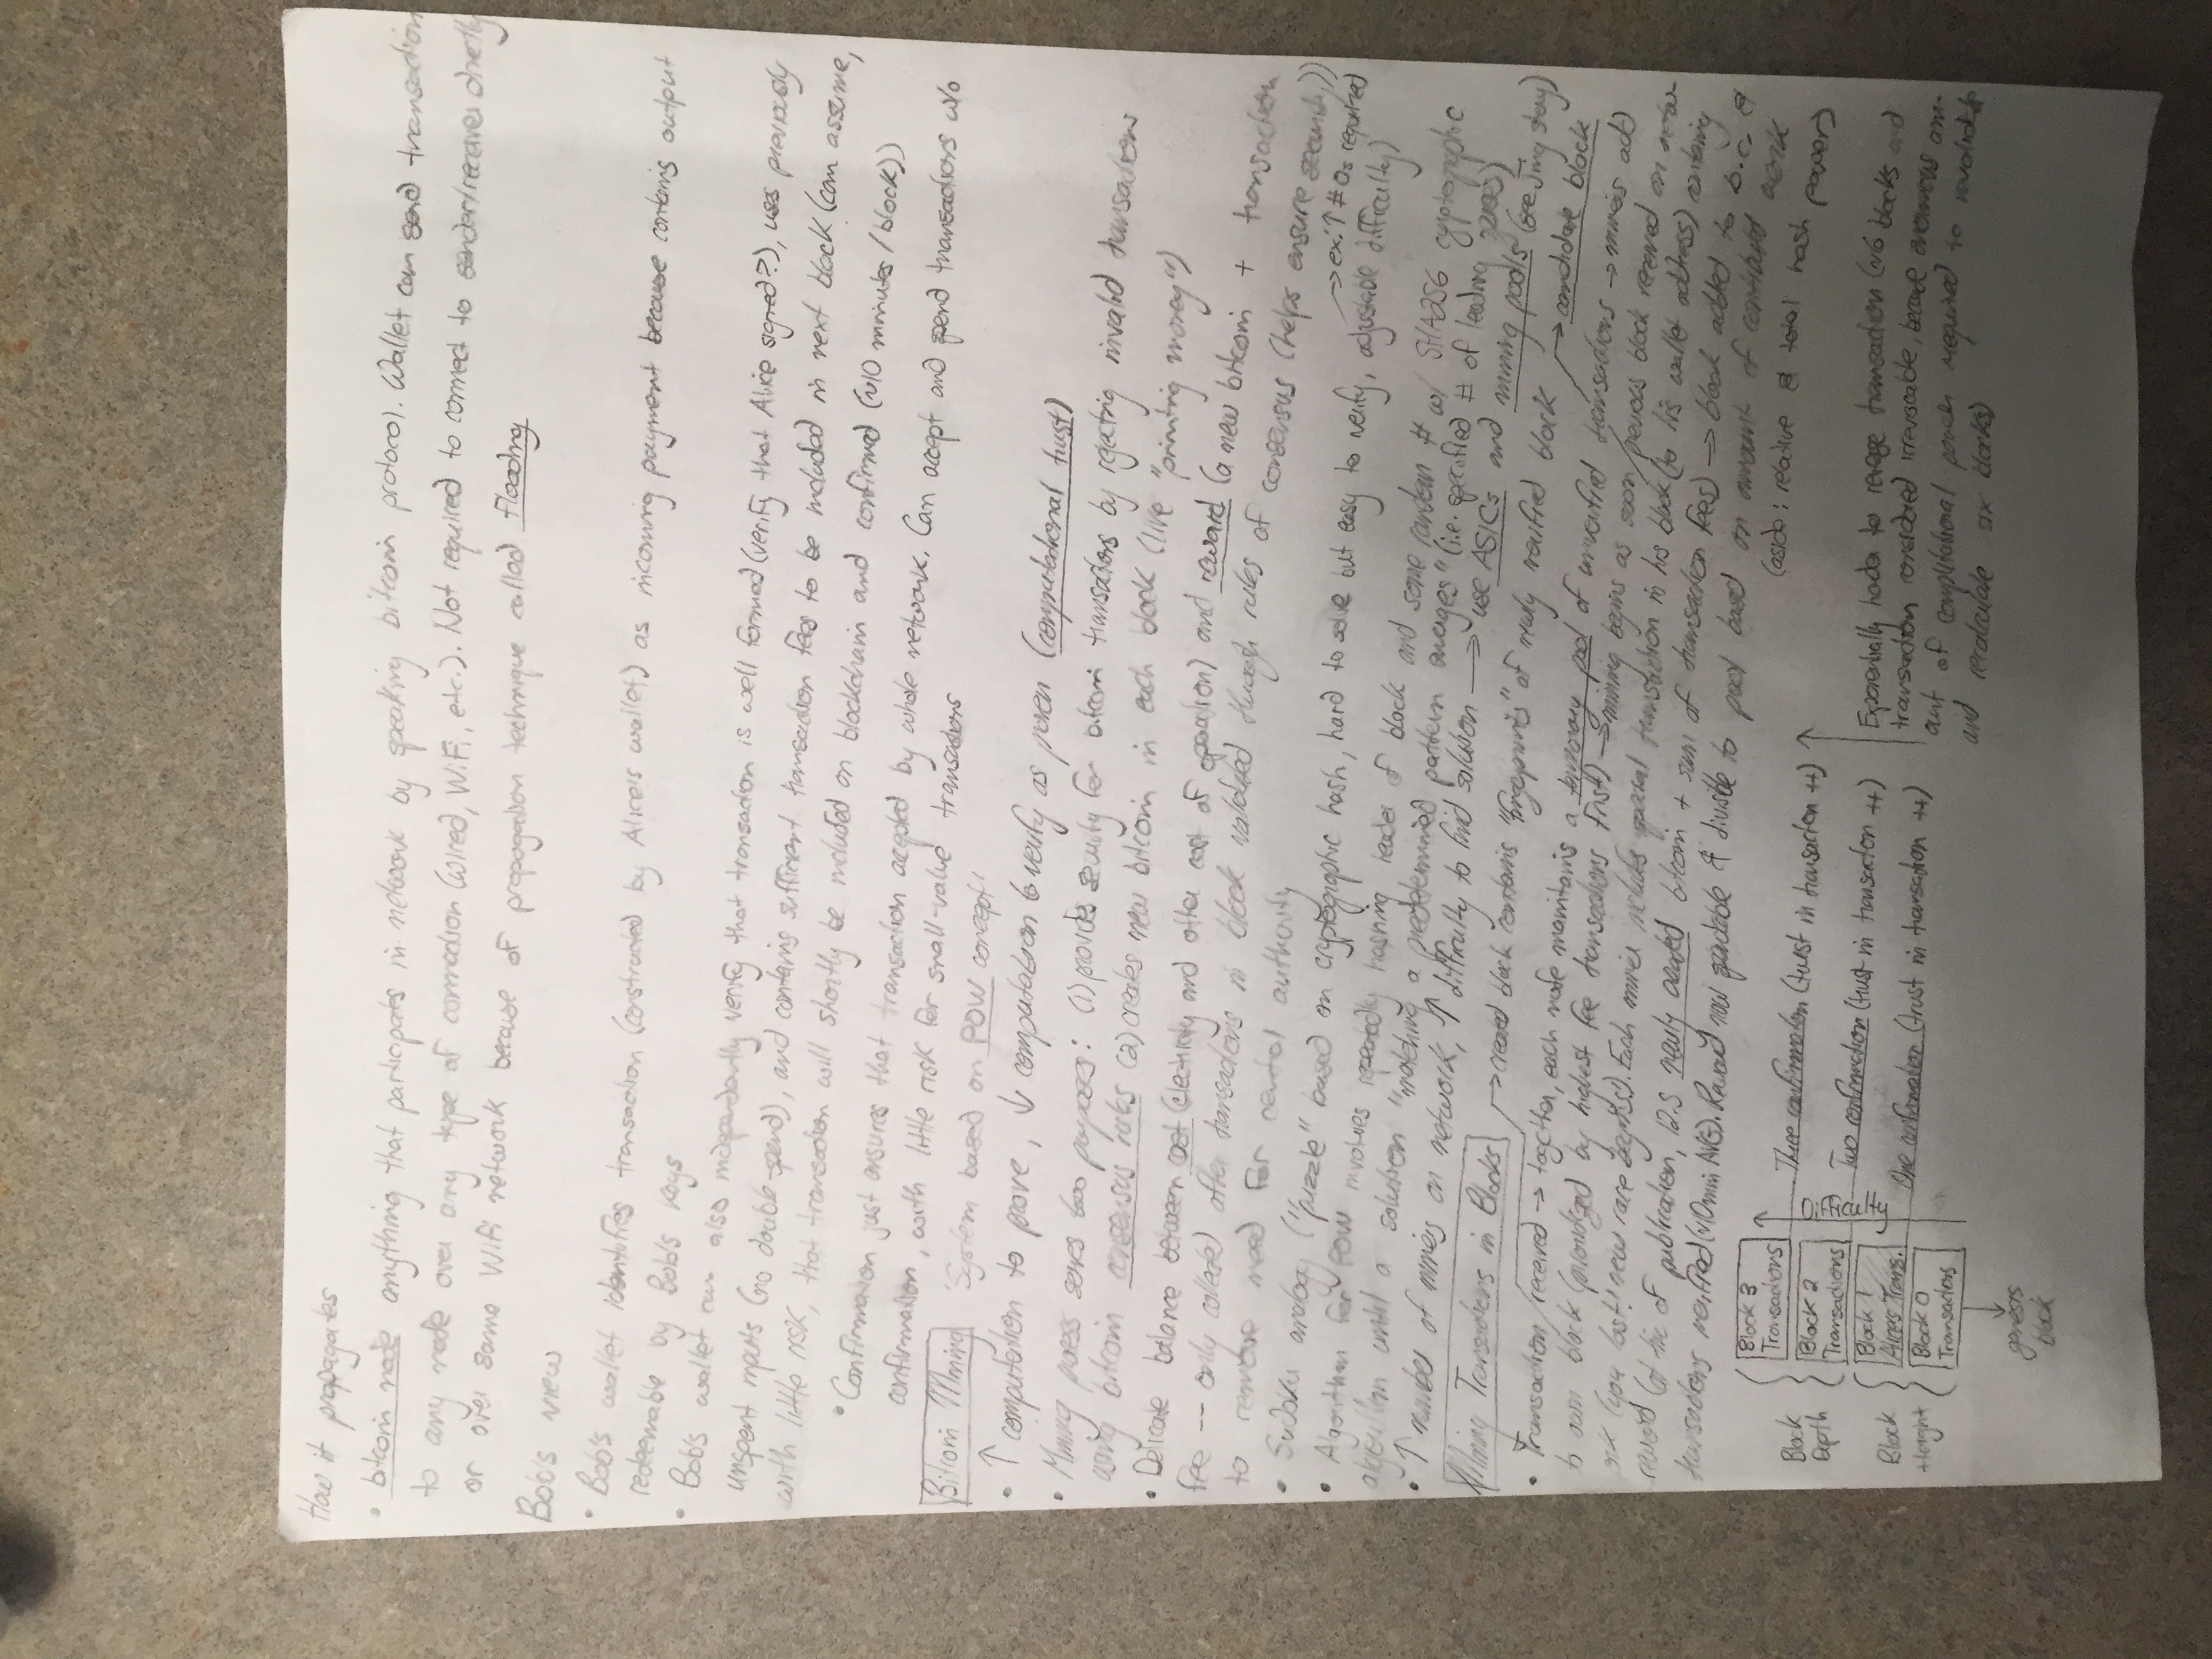 How it propagates
• bitcoin node anything that participates in network by speaking bitcoin protocol. Wallet can send transaction
to any node over any type of connection (wired, WiFi, etc.). Not required to connect to sender/receiver directly
or over same WiFi network because of propagation technique called flooding
Bob's view
• Bob's wallet identifies transaction (constructed by Alice's wallet) as incoming payment because contains output
redeemable by Bob's keys
• Bob's wallet can also independently verify that transaction is well formed (verify that Alice signed?), uses previously
unspent inputs (no double-spend), and contains sufficient transaction fees to be included in next block (can assume,
with little risk, that transaction will shortly be included on blockchain and confirmed (~10 minutes / block))
• Confirmation just ensures that transaction accepted by whole network. Can accept and spend transactions w/o
confirmation, with little risk for small-value transactions
Bitcoin Mining "System based on POW concept"
• ↑ computation to prove, ↓ computation to verify as proven (computational trust)
• Mining process serves two purposes: (1) provides security for bitcoin transactions by rejecting invalid transactions
using bitcoin consensus rules (2) creates new bitcoin in each block (like "printing money")
• Delicate balance between cost (electricity and other cost of operation) and reward (a new bitcoin + transaction
fee -- only collected after transactions in block validated through rules of consensus (helps ensure security))
to remove need for central authority
• Sudoku analogy ("puzzle" based on cryptographic hash, hard to solve but easy to verify, adjustable difficulty)
→ ex: ↑ # 0s required
• Algorithm for POW involves repeatedly hashing header of block and some random # w/ SHA256 cryptographic
algorithm until a solution "matching a predetermined pattern emerges" (i.e. specified # of leading zeros)
• ↑ number of miners on network, ↑ difficulty to find solution → use ASICs and mining pools (see Jing story)
Mining Transactions in Blocks → created block contains "fingerprint" of newly verified block
• Transaction received → together, each node maintains a temporary pool of unverified transactions → miners add
→ candidate block
to own block (prioritized by highest fee transactions first) → mining begins as soon previous block received on network
(you lost! new race begins!). Each miner includes special transaction in his block (to his wallet address) containing
reward (at time of publication, 12.5 newly created bitcoin + sum of transaction fees) → block added to b.c. &
transactions verified (~10 min AVG). Reward now spendable & divisible to pool based on amount of contributed work
(aside: relative to total hash power)
Block Depth
Block Height
Block 3
Transactions
Block 2
Transactions
Block 1
Alice's Trans.
Block 0
Transactions
genesis
block
Three confirmation (trust in transaction ++)
Two confirmation (trust in transaction ++)
One confirmation (trust in transaction ++)
Exponentially harder to reverse transaction (~6 blocks and
transaction considered irreversible, because enormous am-
out of computational power required to invalidate
and recalculate six blocks)